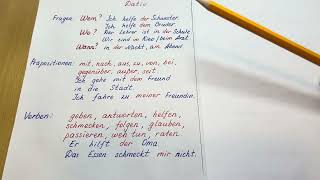 Dativ
Fragen Wem? Ich helfe der Schwester.
Ich helfe dem Bruder
Wo? Der Lehrer ist in der Schule
Wir sind im Kino/beim Arzt
Wann? in der Nacht, am Abend
Präpositionen: mit, nach, aus, zu, von, bei,
gegenüber, außer, seit.
Ich gehe mit dem Freund
in die Stadt.
Ich fahre zu meiner Freundin.
Verben: geben, antworten, helfen,
schmecken, folgen, glauben,
passieren, weh tun, raten.
Er hilft der Oma
Das Essen schmeckt mir nicht.